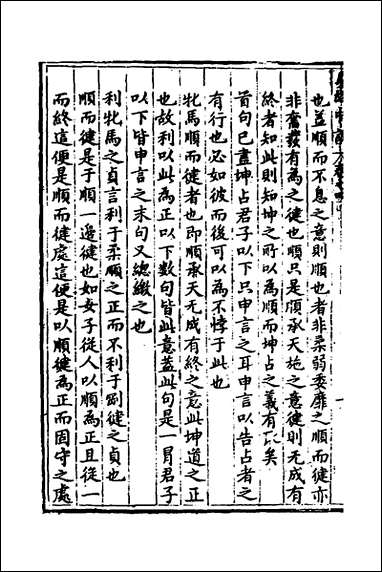 也並順而不息之意則順也者非柔弱委靡之順而健亦
非奮發有為之健也順只是順承天施之意健則無成有
終者知此則知坤之所以為順而坤占之義有以矣
首句已盡坤占君子以下只申言之耳申言以告占者之
有行也必如彼而後可以為不悖于此也
牝馬順而健者也即順承天无成有終之意此坤道之正
也故利以此為正以下數句皆此意蓋此句是一冒君子
以下皆申言之末句又總繳之也
利牝馬之貞言利于柔順之正而不利于剛健之貞也
順而健是于順一邊健也如女子從人以順為正且從一
而終這便是順而健處這便是以順健為正而固守之處